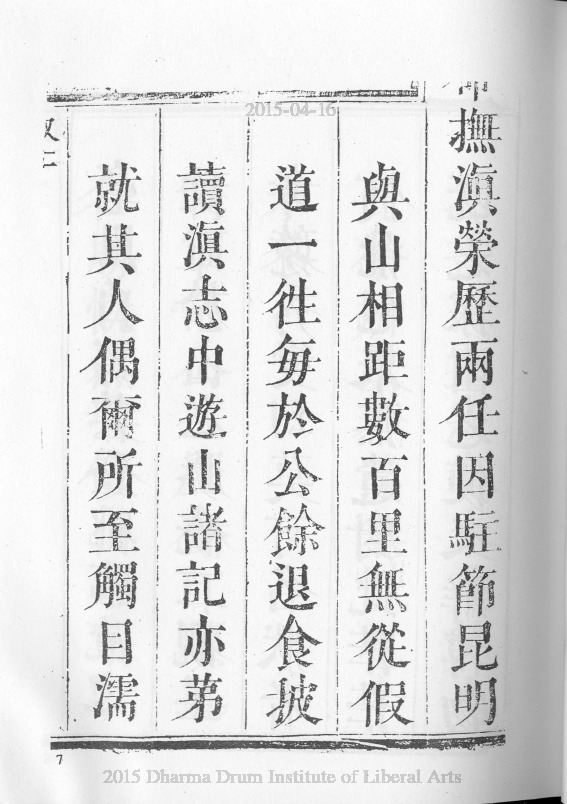 撫滇榮歷兩任因駐節昆明
與山相距數百里無從假
道一徃每於公餘退食披
讀滇志中遊山諸記亦苐
就其人偶爾所至觸目濡
7
2015-04-16
2015 Dharma Drum Institute of Liberal Arts